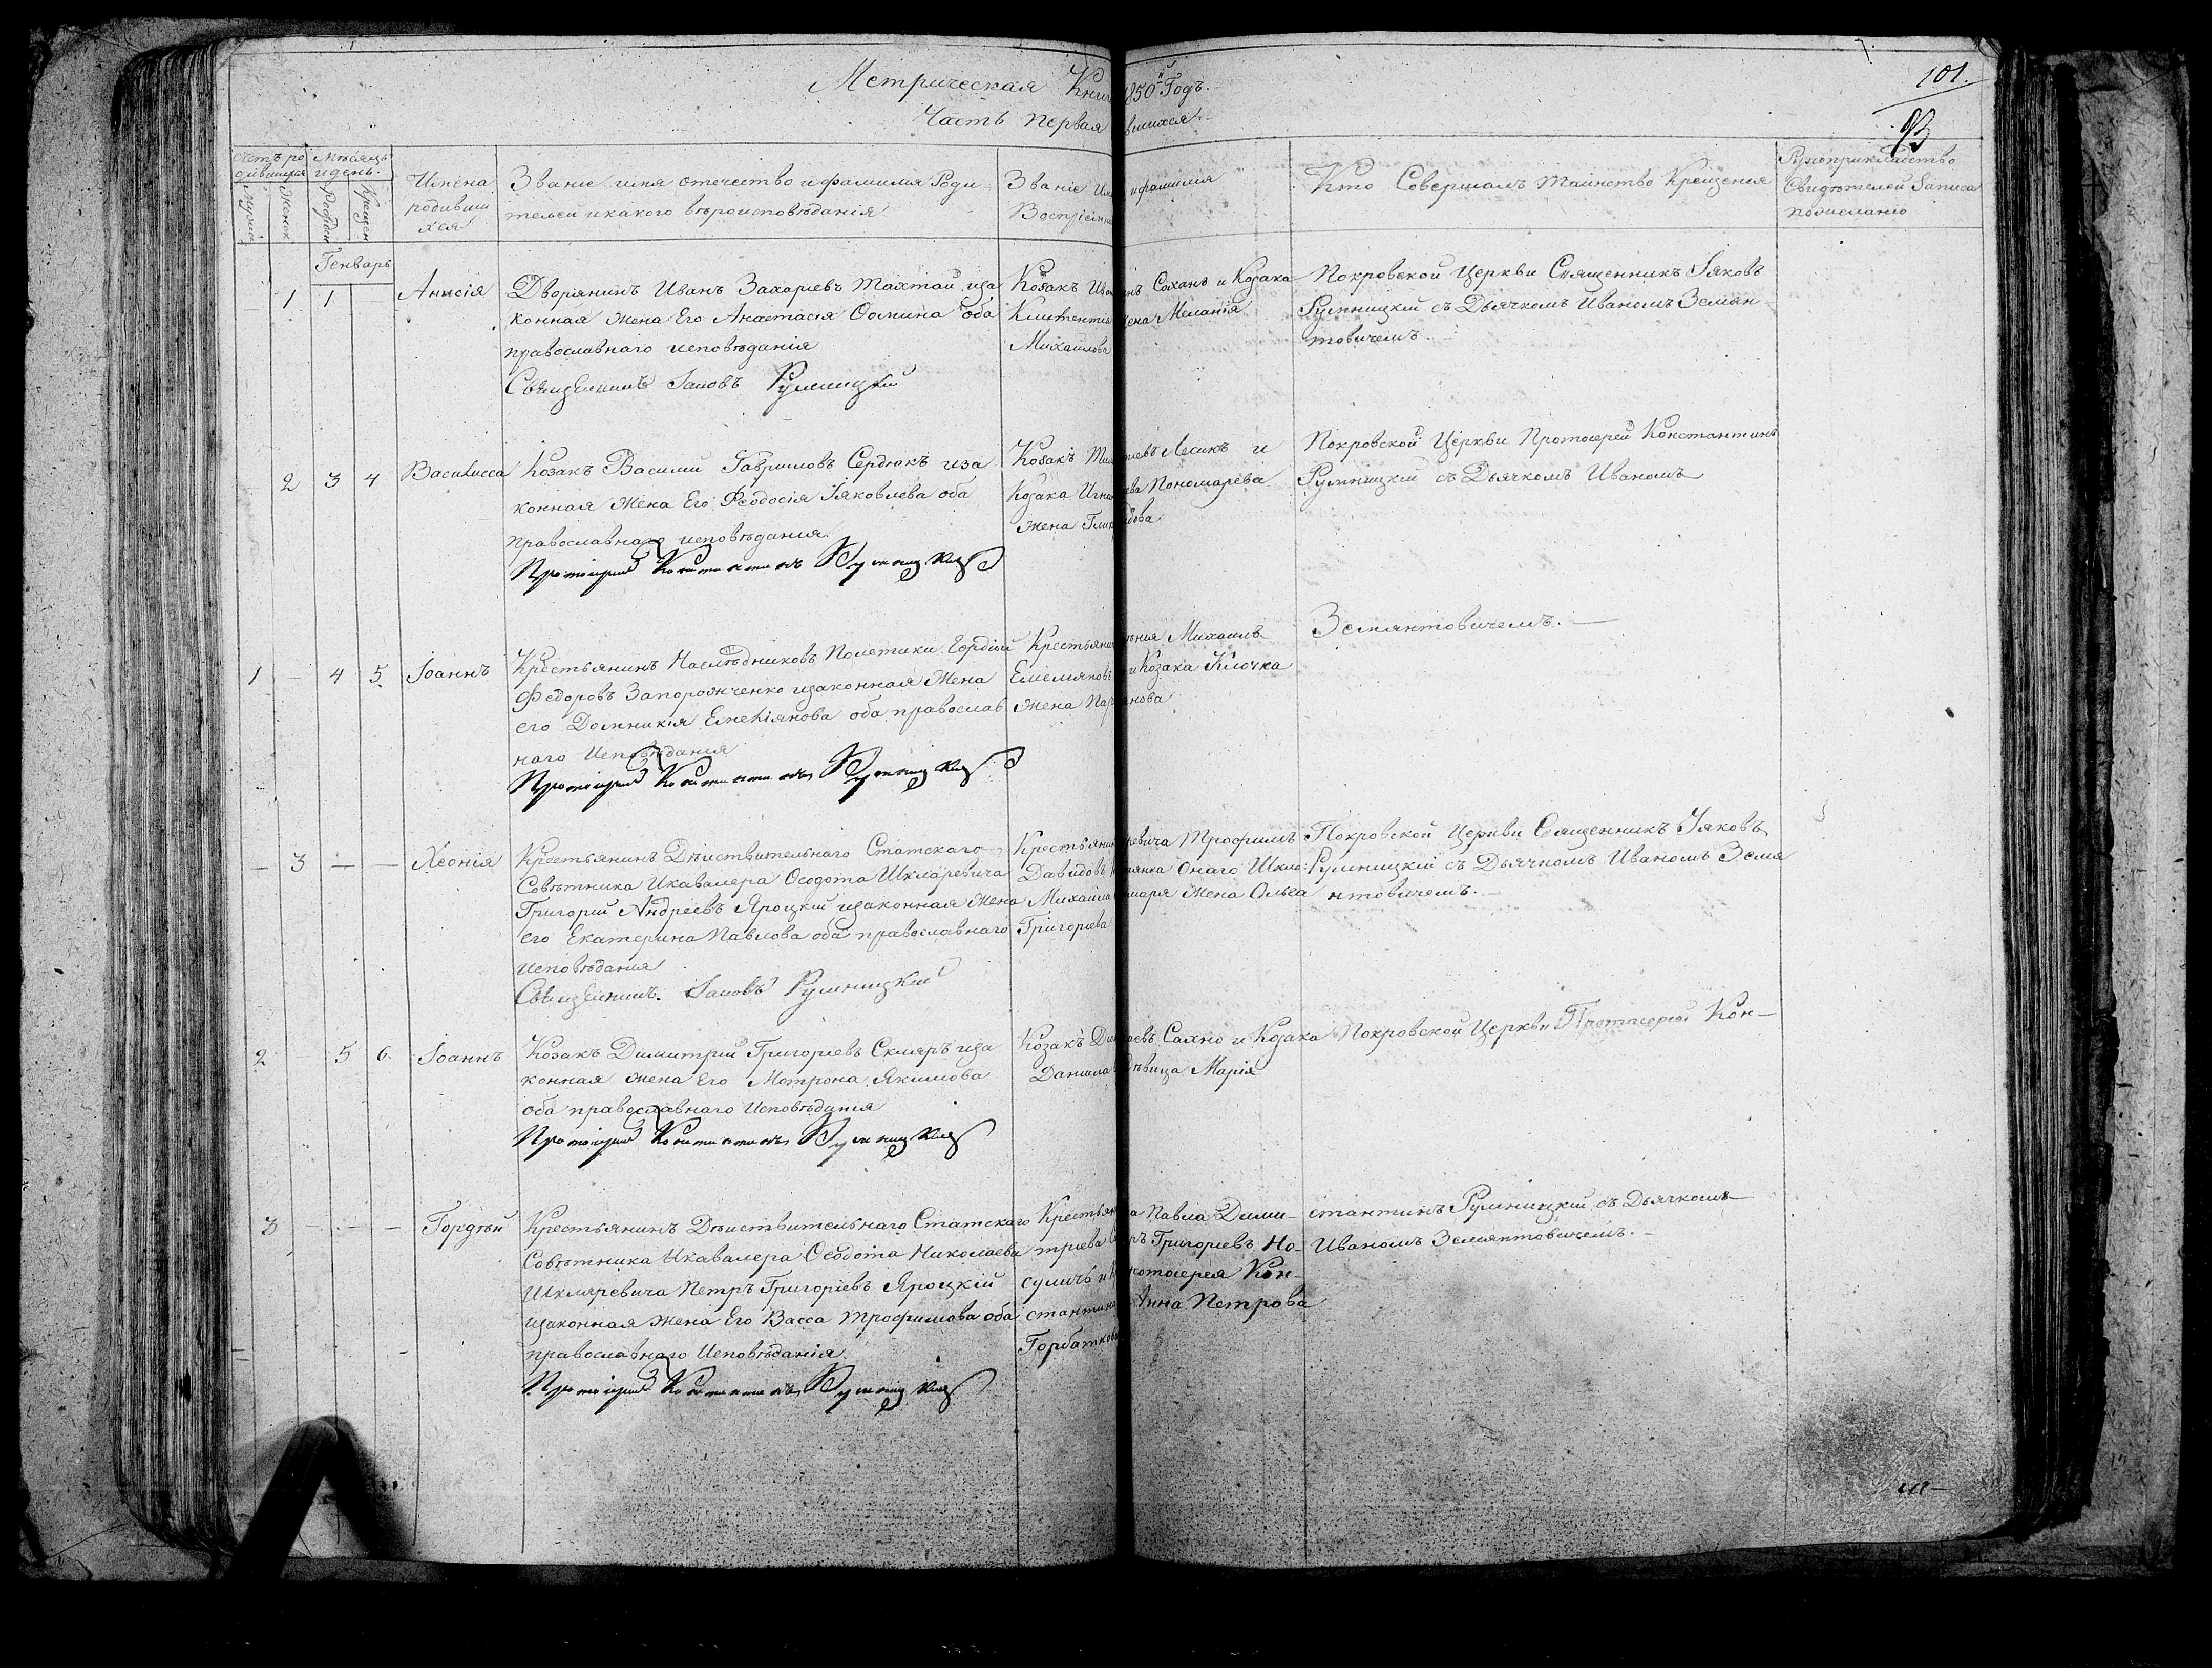 101.
93
Метрическая Книг 1850й Годъ.
Часть первая вшихся
Счетъ ро дившихся
Мѣсяцъ и день.
Мужск
Женск
Рожден
Крещен
Имена
родивши
хся
Званіе имя отечество и фамилія Роди
телей и какого вѣроисповѣданія
Званіе Имя и фамилія
Воспріемни
Кто Совершалъ таинство Крещенія
Рукоприкладство
Свидѣтелей Записа
по желанію
Генварь
1 1 Анисія
Дворянинъ Иванъ Захаріевъ Тахтай иза
конная жена Его Анастасія Фомина оба
православнаго исповѣданія
Священникъ Іаковъ Румницкій
Козакъ Иван нъ Саханъ и Козака
Климентія жена Меланія
Михайлова
Покровской Церкви Священникъ Іяковъ
Румницкій съ Дьячкомъ Иваномъ Земян
товичемъ.
2 3 4 Василисса
Козакъ Василій Гавриловъ Сердюкъ иза
конная Жена Его Феодосія Іяковлева оба
православнаго исповѣданія.
Протоіерей Константинъ Румницкій
Козакъ Ти іевъ Лесикъ и
Козака Игна ева Пономарева
жена Глик дова.
Покровской Церкви Протоіерей Константинъ
Румницкій съ Дьячкомъ Иваномъ
1 – 4 5 Іоаннъ
Крестьянинъ Наслѣдниковъ Полетики Гордій
Федоровъ Запорожченко изаконная Жена
его Домникія Емеліянова оба православ
наго Исповѣданія
Протоіерей Константинъ Румницкій
Крестьянин ѣнія Михаилъ
Емеляновъ и Козака Клочка
жена Пар анова
Земянтовичемъ.
– 3 – – Хеонія
Крестьянинъ Дѣйствительнаго Статскаго
Совѣтника Икавалера Осодота Шкляревича
Григорій Андреевъ Яроцкій изаконная Жена
его Екатерина Павлова оба православнаго
исповѣданія
Священникъ Іаковъ Румницкій
Крестьянин ревича Трофимъ
Давидовъ янка Онаго Шкля:
Михаила маря Жена Ольга
Григоріева
Покровской Церкви Священникъ Іяковъ
Румницкій съ Дьячкомъ Иваномъ Земя
нтовичемъ.
2 5 6 Іоаннъ
Козакъ Димитрій Григоріевъ Скляръ иза
конная жена Его Мотрона Якимова
оба православнаго Исповѣданія
Протоіерей Константинъ Румницкій
Козакъ Ди аевъ Сахно и Козака
Данила дѣвица Марія
Покровской Церкви Протоіерей Кон-
3 – – – Гордѣй
Крестьянинъ Дѣйствительнаго Статскаго
Совѣтника Икавалера Осодота Николаева
Шкляревича Петръ Григоріевъ Яроцкій
изаконная жена Его Васса Трофимова оба
православнаго Исповѣданія
Протоіерей Константинъ Румницкій
Крестьян а Павла Дими-
тріева ръ Григоріевъ Но-
суличъ и П ротоіерея Кон-
стантина Анна Петрова
Горбаткова
стантинъ Румницкій съ Дьячкомъ
Иваномъ Земянтовичемъ.